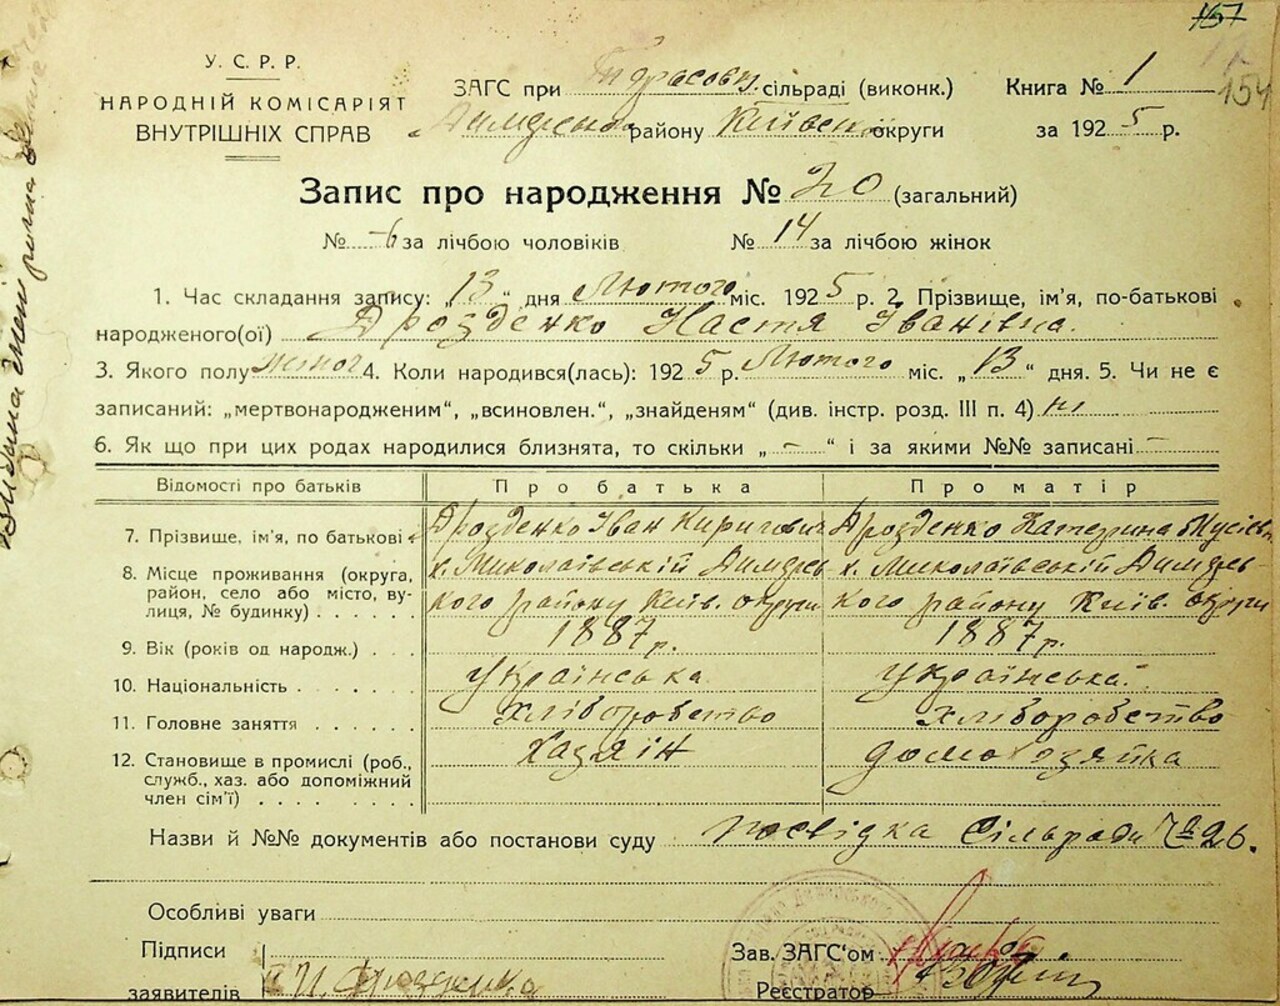 157
154
У. С. Р. Р.
НАРОДНІЙ КОМІСАРІЯТ
ВНУТРІШНІХ СПРАВ
ЗАГС при Тарасовк. сільраді (виконк.)
Димерськ району Київськ округи
Книга № 1
за 1925 р.
Запис про народження № 20 (загальний)
№ 6 за лічбою чоловіків № 14 за лічбою жінок
1. Час складання запису: „13“ дня Лютого міс. 1925 р. 2. Прізвище, ім'я, по-батькові
народженого(ої) Дрозденко Настя Іванівна.
3. Якого полу жіноч 4. Коли народився(лась): 1925 р. Лютого міс. „13“ дня. 5. Чи не є
записаний: „мертвонародженим“, „всиновлен.“, „знайденям“ (див. інстр. розд. III п. 4) ні
6. Як що при цих родах народилися близнята, то скільки „ - “ і за якими №№ записані -
Відомості про батьків Про батька Про матір
7. Прізвище, ім'я, по батькові Дрозденко Іван Киригович Дрозденко Катерина Мусієвн
8. Місце проживання (округа, х. Миколаівській Димерсь х. Миколаївській Димерсь-
район, село або місто, ву- кого району Київ. округи кого району Київ. округи
лиця, № будинку) . . . . .
9. Вік (років од народж.) . . . 1887 р. 1887 р.
10. Національність . . . . . . Українська Українська.
11. Головне заняття . . . . . . хліборобство хліборобство
12. Становище в промислі (роб., Хазяін домохозяйка
служб., хаз. або допоміжний
член сім'ї) . . . . . . . .
Назви й №№ документів або постанови суду посвідка Сільради № 26.
Особливі уваги
Підписи
заявителів И. Дрозденко
Зав. ЗАГС'ом
Реєстратор